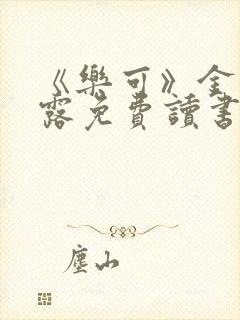 《樂可》全
露免費讀書
塵山